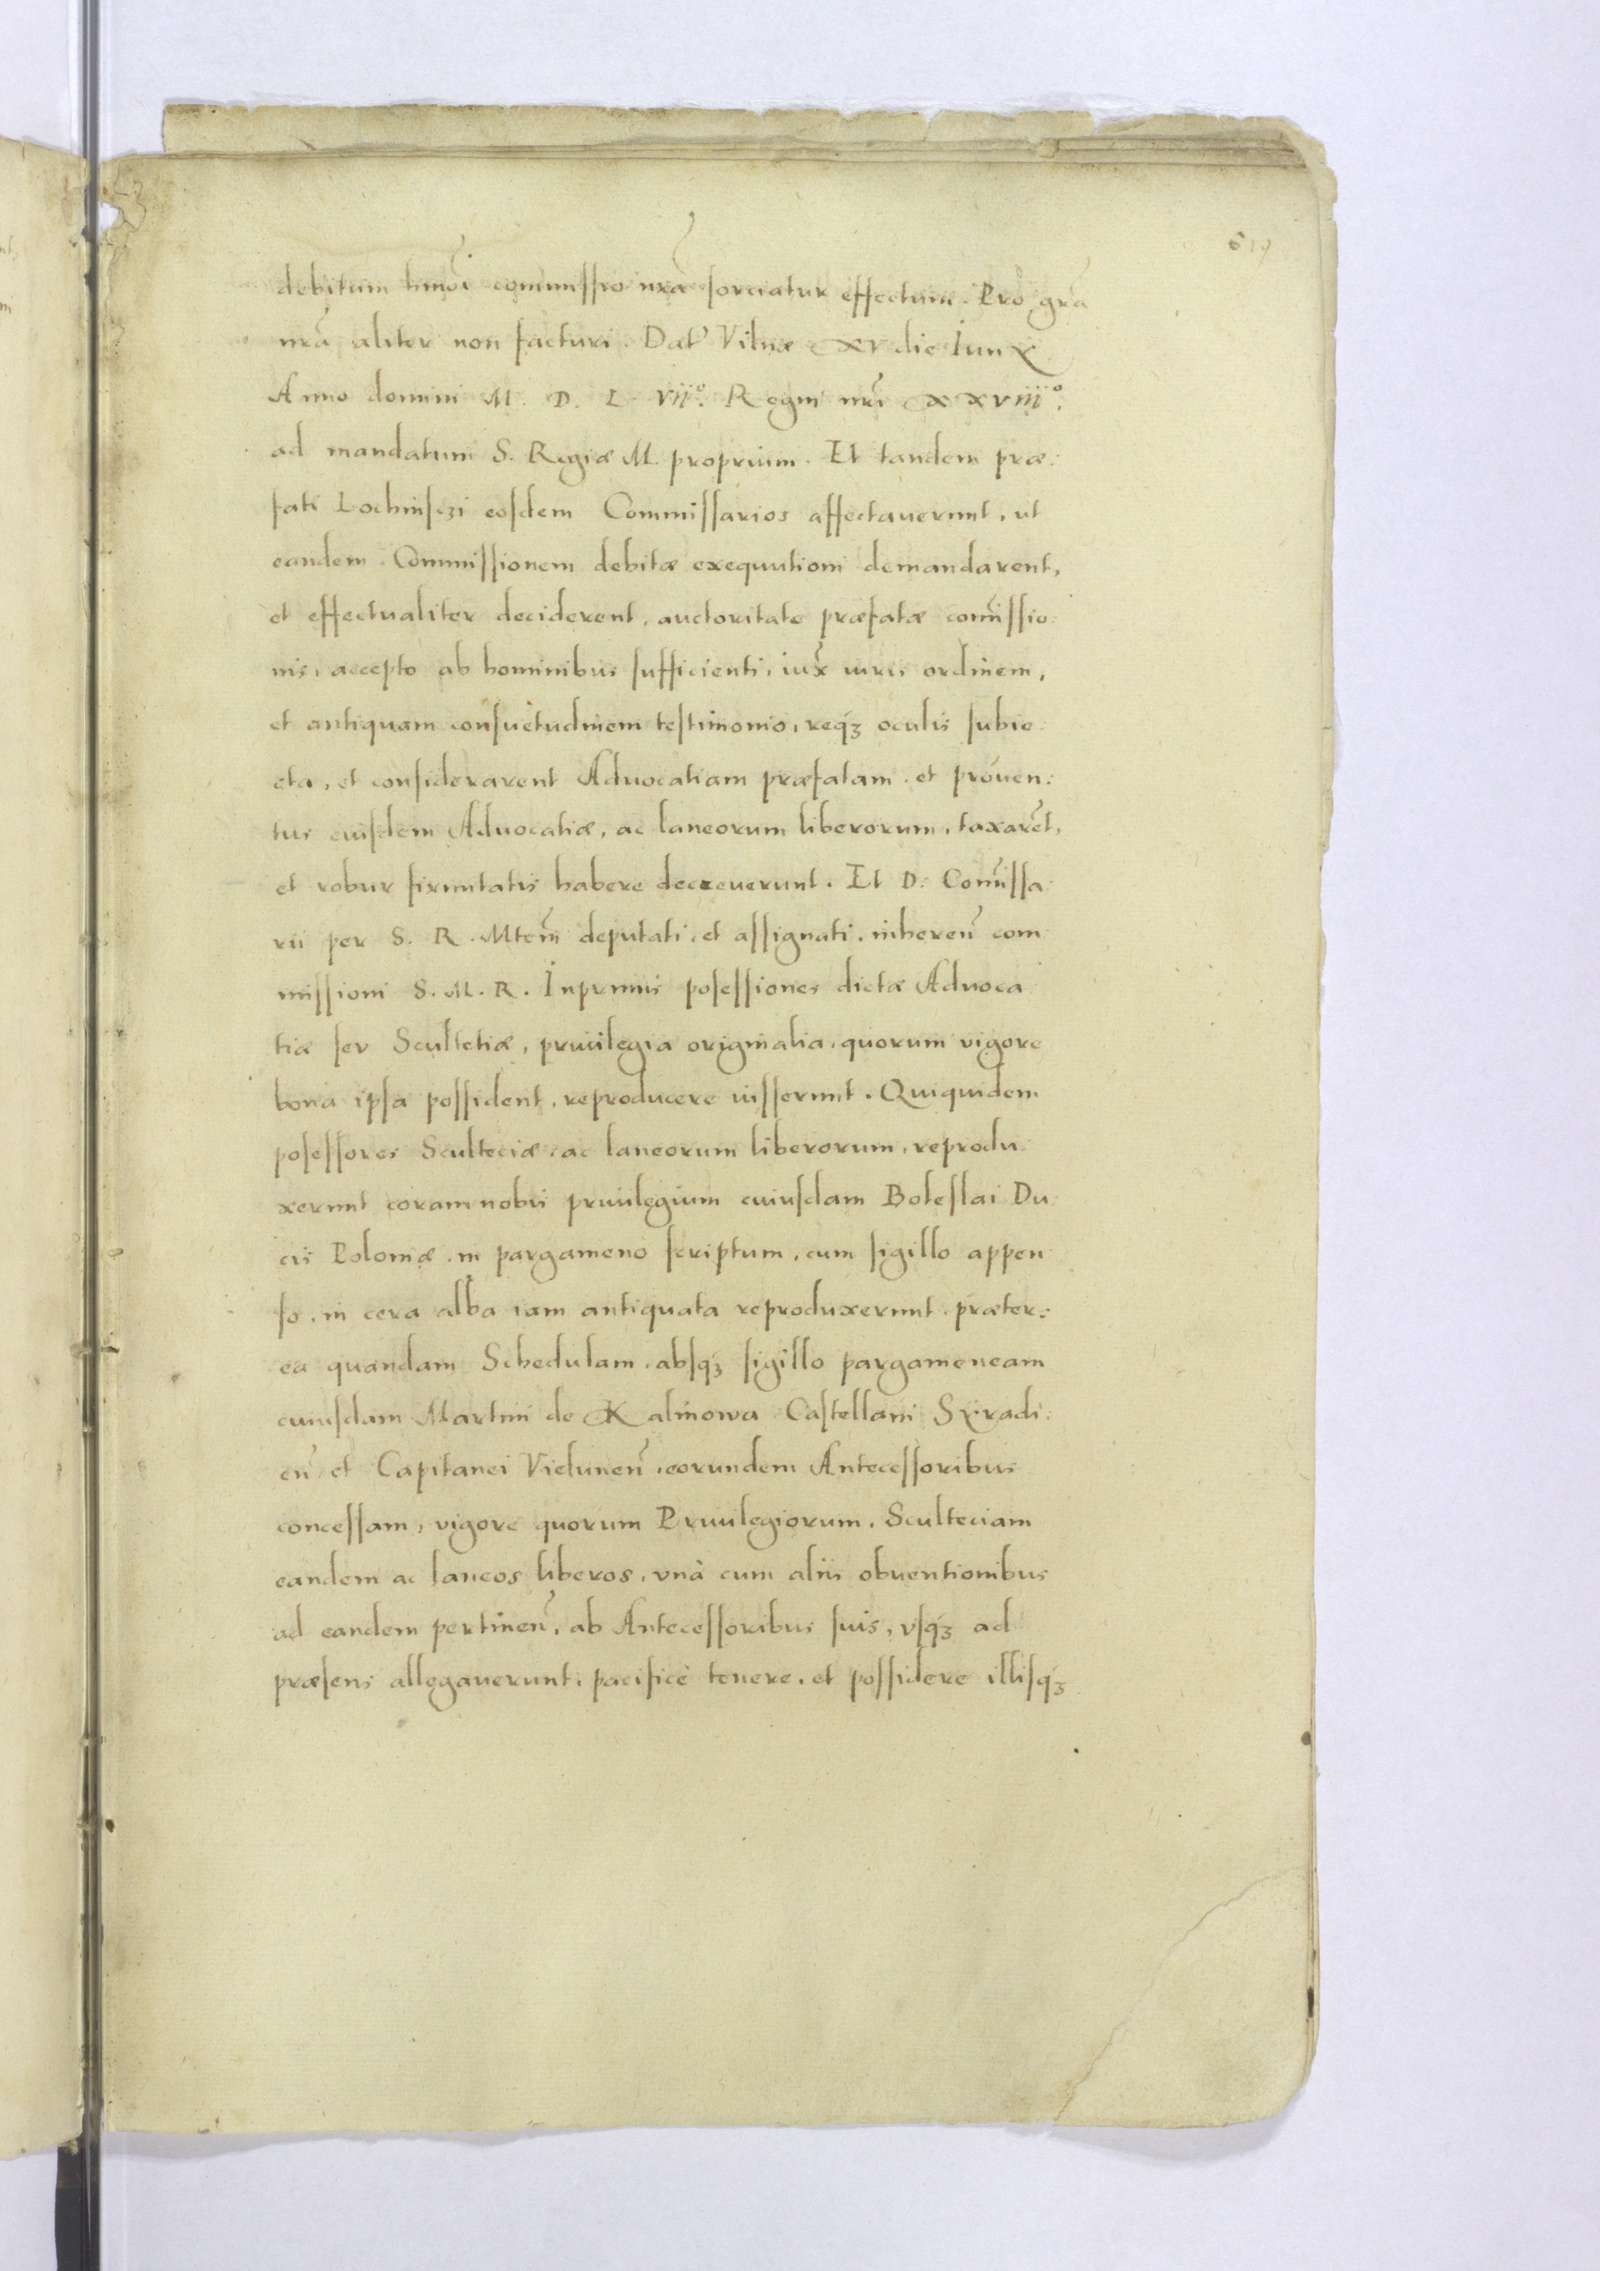 619
debitum hmōi commissio nr̃a sorciatur effectum. Pro gr̃a
nr̃a aliter non facturi. Dat̃ Vilnæ XV die Iunÿ
Anno domini M. D. L. VII°. Regni nr̃i XXVIII°.
ad mandatum S. Regiæ M. proprium. Et tandem præ:
fati Lochinsczi eosdem Commissarios affectauerunt, ut
eandem Commissionem debitæ exequutioni demandarent,
et effectualiter deciderent, auctoritate præfatæ com̃issio:
nis, accepto ab hominibus sufficienti, iux̃ iuris ordinem,
et antiquam consuetudinem testimonio, reqꝫ oculis subie:
cta, et considerarent Aduocatiam præfatam. et prouen:
tus eiusdem Aduocatiæ, ac laneorum liberorum, taxarẽt,
et robur firmitatis habere decreuerunt. Et D: Com̃issa:
rii per S. R. Mtem̃ deputati, et assignati, inheren̄ com
missioni S. M. R. Inprimis posessiones dictæ Aduoca
tiæ seu Scultetiæ, priuilegia originalia, quorum vigore
bona ipsa possident, reproducere iusserunt. Quiquidem
posessores Sculteciæ, ac laneorum liberorum, reprodu:
xerunt coram nobis priuilegium cuiusdam Boleslai Du
cis Poloniæ, in pargameno scriptum, cum sigillo appen
so, in cera alba iam antiquata reproduxerunt, præter:
ea quandam Schedulam, absqꝫ sigillo pargameneam
cuiusdam Martini de Kalinowa Castellani Syradi:
en̄ et Capitanei Vielunen̄, eorundem Antecessoribus
concessam, vigore quorum Priuilegiorum, Sculteciam
eandem ac laneos liberos, vnà cum aliis obuentionibus
ad eandem pertinen̄, ab Antecessoribus suis, vsqꝫ ad
præsens allegauerunt, pacificè tenere, et possidere illisqꝫ